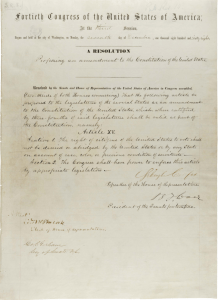 Fortieth Congress of the United States of America;
At the third Session,
Begun and held at the city of Washington, on Monday, the seventh day of December, one thousand eight hundred and sixty-eight.
A RESOLUTION
Proposing an amendment to the Constitution of the United States.
Resolved by the Senate and House of Representatives of the United States of America in Congress assembled,
(two-thirds of both Houses concurring) that the following article be
proposed to the legislatures of the several States as an amendment
to the Constitution of the United States, which, when ratified
by three-fourths of said legislatures shall be valid as part
of the Constitution, namely:
Article XV.
Section 1. The right of citizens of the United States to vote shall not
be denied or abridged by the United States or by any State
on account of race, color, or previous condition of servitude.
Section 2. The Congress shall have power to enforce this article
by appropriate legislation.
Speaker of the House of Representatives.
President of the Senate
Attest:
Clerk of House of Representatives